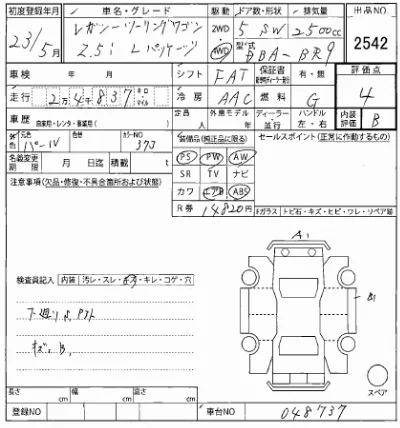 初度登録年月 車名・グレード 駆動 ドア数・形状 排気量 出品NO.
23/5月 レガシーツーリングワゴン 2WD 5 SW 2500cc 2542
2.5i Lパッケージ 4WD 型式 DBA-BR9
車検 年 月 シフト FAT 保証書 有・無 評価点
走行 2万4千837 キロ マイル 冷房 AAC 燃料 G 4
車歴 自家用・レンタ・事業用( ) 定員 人 外車モデル 年 ディーラー・並行 ハンドル 左・右 内装評価 B
元色 色替 カラーNO 装備品(純正品に限る) セールスポイント(正常に作動するもの)
パール 37J PS PW AW
名義変更期限 月 日迄 積載 t SR TV ナビ
注意事項(欠品・修復・不具合箇所および状態) カワ エアB ABS
R券 14820円
Fガラス トビ石・キズ・ヒビ・ワレ・リペア跡
A1
検査員記入 内装 汚レ・スレ・キズ・キレ・コゲ・穴
B1
キズ、B、
スペア
長さ cm 幅 cm 高さ cm
登録NO 車台NO 048737